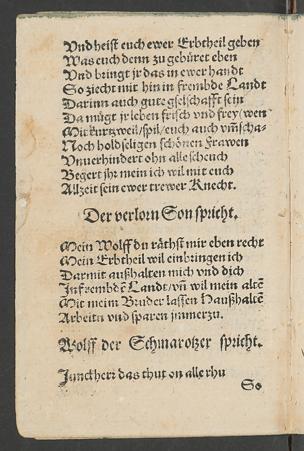 Vnd heist euch ewer Erbtheil geben
Was euch denn zu gebüret eben
Vnd bringt jr das in ewer handt
So ziecht mit hin in frembde Landt
Darinn auch gute gselschafft sein
Da mügt jr leben frisch vnd frey/wen
Mit kurtzweil/spil/euch auch vm̃scha-
Noch holdseligen schönen Frawen
Vnuerhindert ohn alle scheuch
Begert jhr mein ich wil mit euch
Allzeit sein ewer trewer Knecht.
Der verlorn Son spricht.
Mein Wolff du räthst mir eben recht
Mein Erbtheil wil einbringen ich
Darmit außhalten mich vnd dich
In frembdẽ Landt/vñ wil mein altẽ
Mit meim Bruder lassen Haußhaltẽ
Arbeitn vnd sparen jmmerzu.
Wolff der Schmarotzer spricht.
Junckherr das thut on alle rhu
So